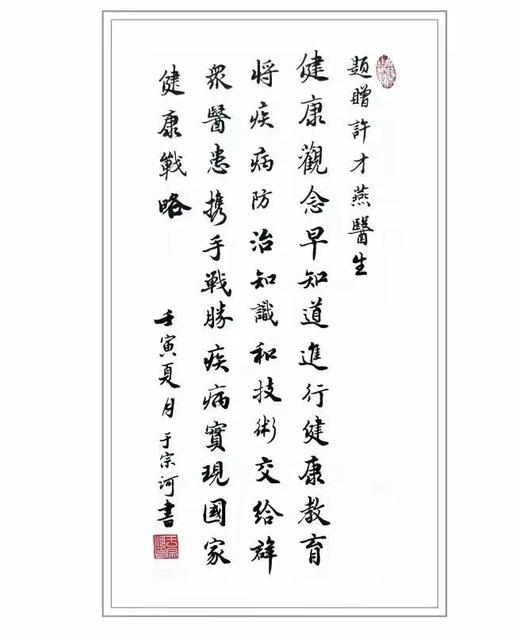 題贈許才燕醫生
健康觀念早知道進行健康教育
將疾病防治知識和技術交給群
衆醫患携手戰勝疾病實現國家
健康戰略
壬寅夏月于宗河書